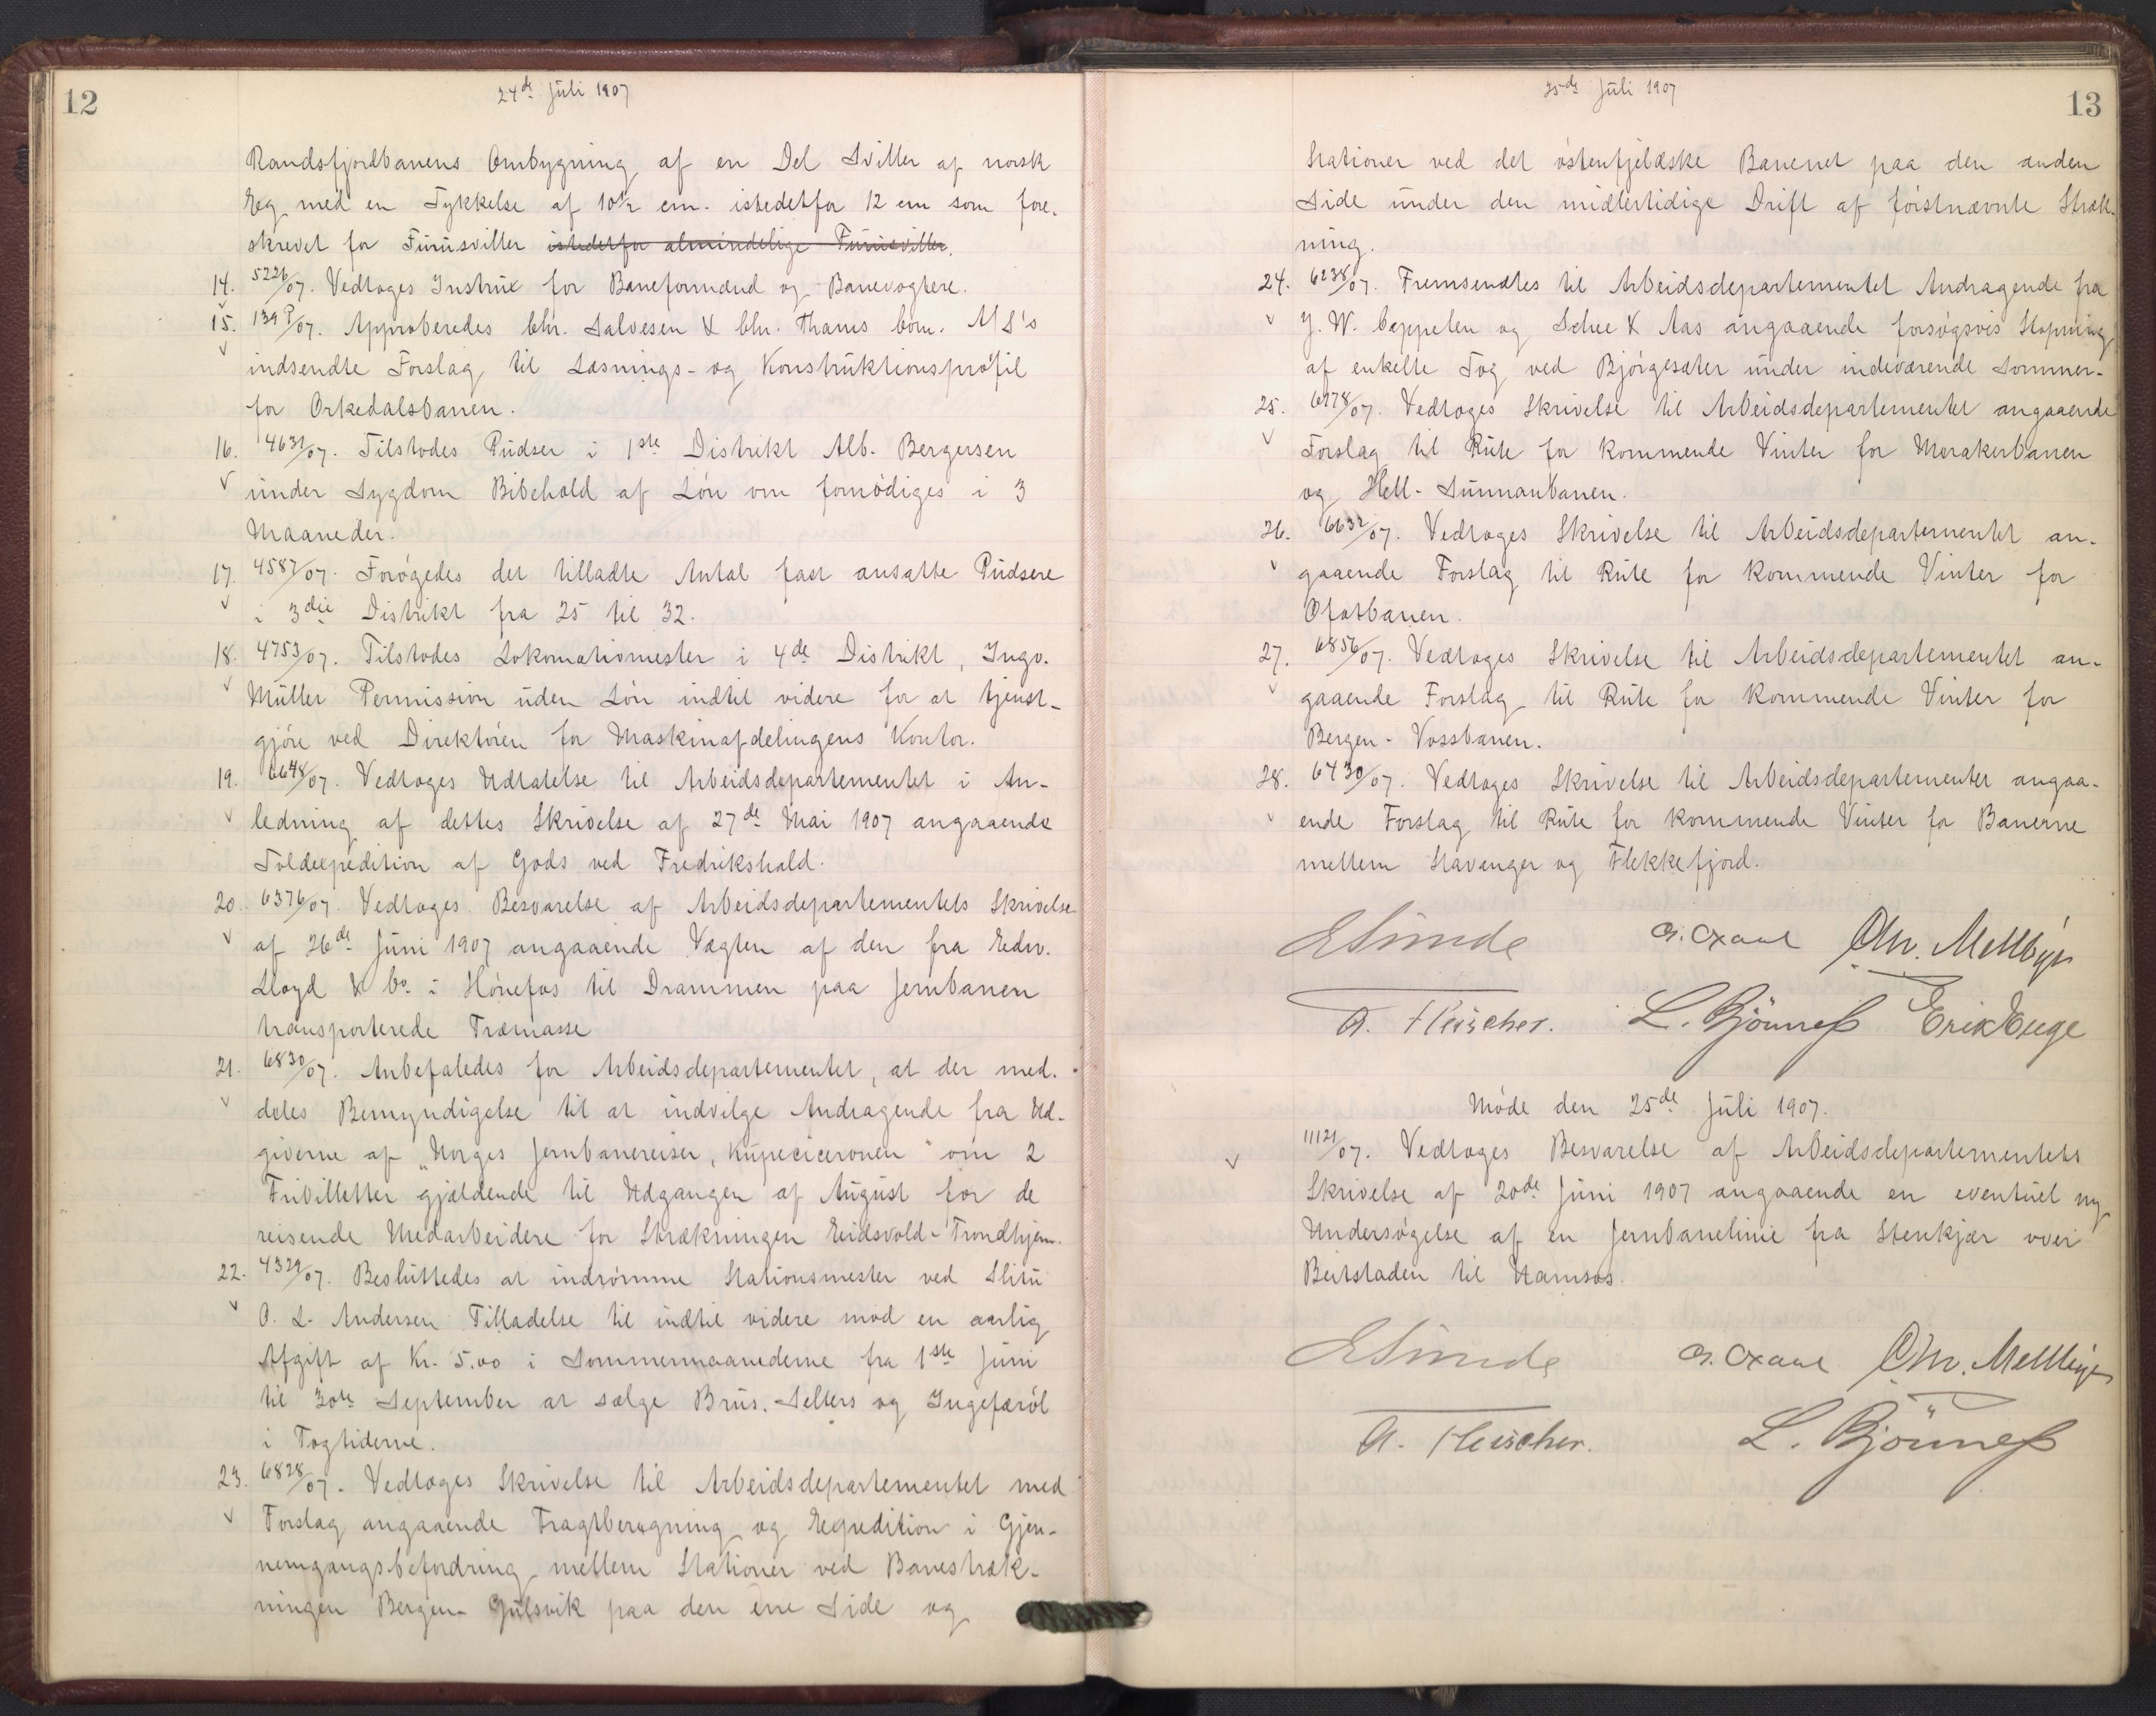 12
24de Juli 1907
Randsfjordbanens Ombygning af en Del Sviller af norsk
Eg med en Tykkelse af 10½ cm. istedetfor 12 cm som fore-
skrevet for Furusviller istedetfor almindelige Furusviller.
14. 5226/07. Vedtoges Instrux for Baneformænd og Banevogtere.
15. 139P/07. Approberedes Chr. Salvesen & Chr. Thams Com. AS's
indsendte Forslag til Læsnings- og Konstruktionsprofil
for Orkedalsbanen.
16. 4631/07. Tilstodes Pudser i 1ste Distrikt Alb. Bergersen
under Sygdom Bibehold af Løn om fornødiges i 3
Maaneder.
17. 4587/07. Forøgedes det tilladte Antal fast ansatte Pudsere
i 3die Distrikt fra 25 til 32.
18. 4753/07. Tilstodes Lokomotivmester i 4de Distrikt, Ingv.
Müller Permission uden Løn indtil videre for at tjenst-
gjøre ved Direktøren for Maskinafdelingens Kontor.
19. 6648/07. Vedtoges Udtalelse til Arbeidsdepartementet i An-
ledning af dettes Skrivelse af 27de Mai 1907 angaaende
Toldexpedition af Gods ved Fredrikshald.
20. 6376/07. Vedtoges Besvarelse af Arbeidsdepartementets Skrivelse
af 26de Juni 1907 angaaende Vægten af den fra Edw.
Lloyd & Co i Hønefos til Drammen paa Jernbanen
transporterede Træmasse
21. 6830/07. Anbefaledes for Arbeidsdepartementet, at der med-
deles Bemyndigelse til at indvilge Andragende fra Ud-
giverne af „Norges Jernbanereiser, Kupeciceronen" om 2
Fribilletter gjældende til Udgangen af August for de
reisende Medarbeidere for Strækningen Eidsvold-Trondhjem.
22. 4329/07. Besluttedes at indrømme Stationsmester ved Slitu
O. L. Andersen Tilladelse til indtil videre mod en aarlig
Afgift af Kr. 5.00 i Sommermaanederne fra 1ste Juni
til 30te September at sælge Brus, Selters og Ingefærøl
i Togtiderne.
23. 6828/07. Vedtoges Skrivelse til Arbeidsdepartementet med
Forslag angaaende Fragtberegning og Expedition i Gjen-
nemgangsbefordring mellem Stationer ved Banestræk-
ningen Bergen-Gulsvik paa den ene Side og
13
25de Juli 1907
Stationer ved det østenfjeldske Banenet paa den anden
Side under den midlertidige Drift af førstnævnte Stræk-
ning.
24. 6238/07. Fremsendtes til Arbeidsdepartementet Andragende fra
J. W. Cappelen og Schee & Aas angaaende forsøgsvis Stopning
af enkelte Tog ved Bjørgesæter under indeværende Sommer.
25. 6178/07. Vedtoges Skrivelse til Arbeidsdepartementet angaaende
Forslag til Rute for kommende Vinter for Merakerbanen
og Hell-Sunnanbanen.
26. 6632/07. Vedtoges Skrivelse til Arbeidsdepartementet an-
gaaende Forslag til Rute for kommende Vinter for
Ofotbanen.
27. 6856/07. Vedtoges Skrivelse til Arbeidsdepartementet an-
gaaende Forslag til Rute for kommende Vinter for
Bergen-Vossbanen.
28. 6430/07. Vedtoges Skrivelse til Arbeidsdepartementet angaa-
ende Forslag til Rute for kommende Vinter for Banerne
mellem Stavanger og Flekkefjord.
E Sunde Chr. Mellbye
A. Fleischer. L. Bjönness Erik Enge
Møde den 25de Juli 1907.
11121/07. Vedtoges Besvarelse af Arbeidsdepartementets
Skrivelse af 20de Juni 1907 angaaende en eventuel ny
Undersøgelse af en Jernbanelinie fra Stenkjær over
Beitstaden til Namsos.
E Sunde Chr. Mellbye
A. Fleischer. L. Bjönness